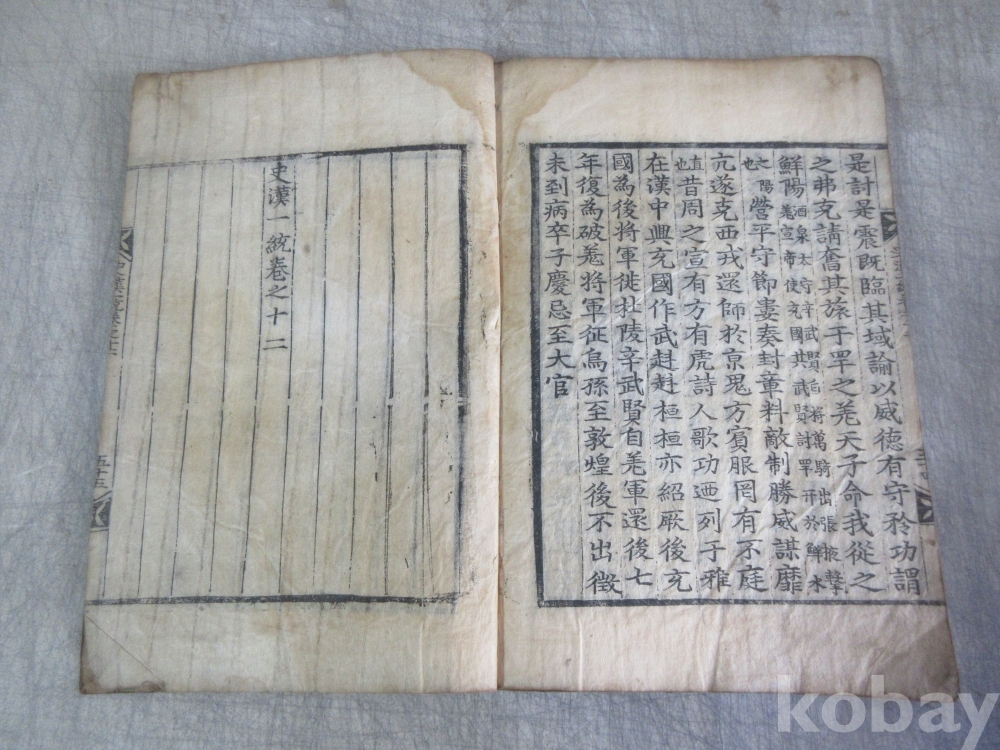 是討是震既臨其域諭以威德有守矜功謂
之弗克請奮其旅于罕之羌天子命我從之
鮮陽酒泉太守辛武賢自將萬騎出張掖擊
羌宣帝使充國共武賢討罕幵於鮮水
之陽也營平守節婁奏封章料敵制勝威謀靡
亢遂克西戎還師於京鬼方賓服罔有不庭
直也昔周之宣有方有虎詩人歌功迺列于雅
在漢中興充國作武赳赳桓桓亦紹厥後充
國為後將軍徙杜陵辛武賢自羌軍還後七
年復為破羌將軍征烏孫至敦煌後不出徵
未到病卒子慶忌至大官
史漢一統卷之十二
五十三
kobay